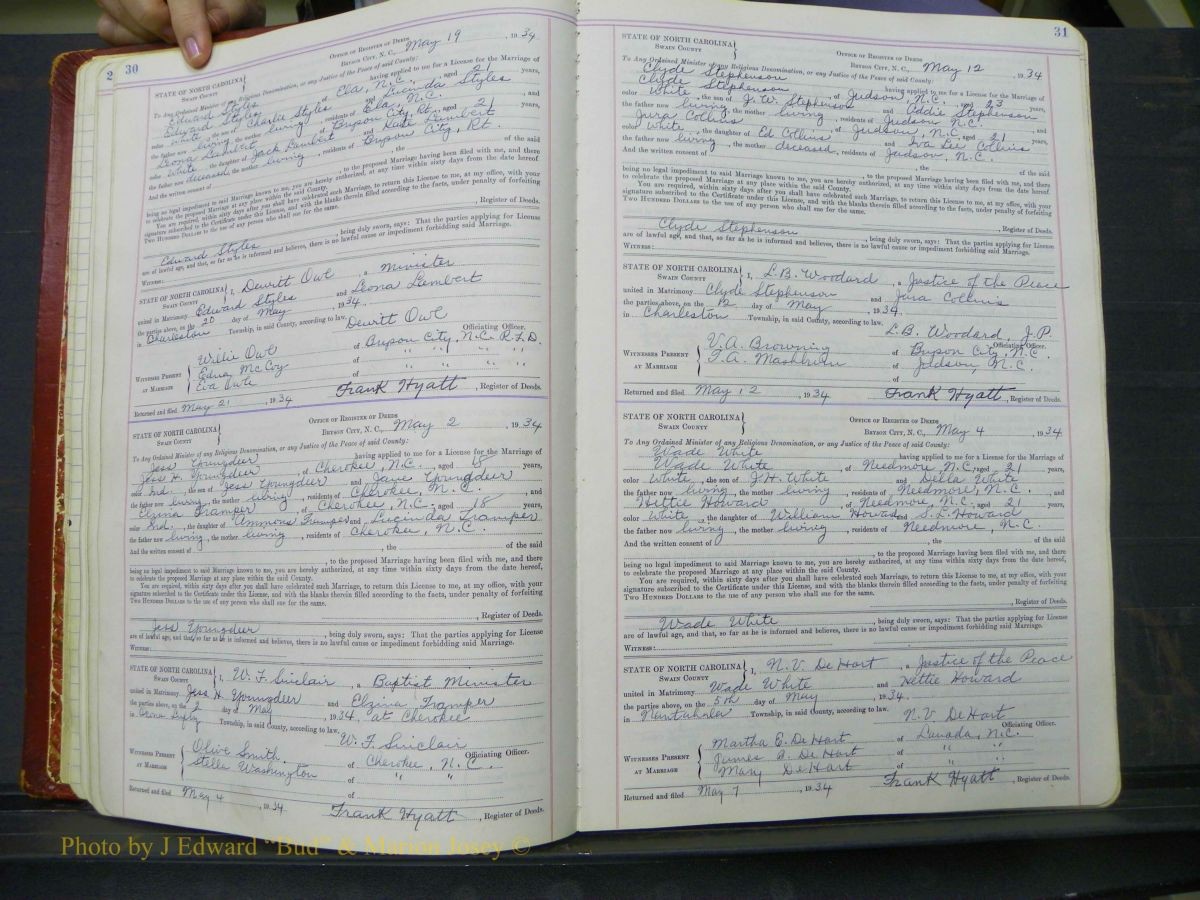 30
OFFICE OF REGISTER OF DEEDS
STATE OF NORTH CAROLINA
SWAIN COUNTY
BRYSON CITY, N. C., May 19, 1934
To Any Ordained Minister of any Religious Denomination, or any Justice of the Peace of said County:
Edward Styles having applied to me for a License for the Marriage of
Edward Styles, of Ela, N.C., aged 21 years,
color White, the son of Charlie Styles and Lucinda Styles
the father now living, the mother living, residents of Ela, N.C., and
Leona Lambert, of Bryson City, Rt., aged 21 years,
color White, the daughter of Jack Lambert and Kate Lambert
the father now deceased, the mother living, residents of Bryson City, Rt.
And the written consent of , the of the said
, to the proposed Marriage having been filed with me, and there
being no legal impediment to said Marriage known to me, you are hereby authorized, at any time within sixty days from the date hereof
to celebrate the proposed Marriage at any place within the said County.
You are required, within sixty days after you shall have celebrated such Marriage, to return this License to me, at my office, with your
signature subscribed to the Certificate under this License, and with the blanks therein filled according to the facts, under penalty of forfeiting
TWO HUNDRED DOLLARS to the use of any person who shall sue for the same.
, Register of Deeds.
Edward Styles, being duly sworn, says: That the parties applying for License
are of lawful age, and that, so far as he is informed and believes, there is no lawful cause or impediment forbidding said Marriage.
WITNESS:
STATE OF NORTH CAROLINA
SWAIN COUNTY
I, Dewitt Owl, a Minister
united in Matrimony Edward Styles and Leona Lambert
the parties above, on the 20 day of May, 1934,
in Charleston Township, in said County, according to law.
Dewitt Owl
Officiating Officer.
WITNESSES PRESENT AT MARRIAGE
Willie Owl of Bryson City, N.C. R.F.D.
Edna McCoy of " " " "
Eva of " " " "
Returned and filed May 21, 1934
Frank Hyatt, Register of Deeds.
OFFICE OF REGISTER OF DEEDS
STATE OF NORTH CAROLINA
SWAIN COUNTY
BRYSON CITY, N. C., May 2, 1934
To Any Ordained Minister of any Religious Denomination, or any Justice of the Peace of said County:
Jess Youngdeer having applied to me for a License for the Marriage of
Jess H. Youngdeer, of Cherokee, N.C., aged 18 years,
color Ind., the son of Jess Youngdeer and Jane Youngdeer
the father now living, the mother living, residents of Cherokee, N.C., and
Elzina Tramper, of Cherokee, N.C., aged 18 years,
color Ind., the daughter of Ammons Tramper and Lucinda Tramper
the father now living, the mother living, residents of Cherokee, N.C.
And the written consent of , the of the said
, to the proposed Marriage having been filed with me, and there
being no legal impediment to said Marriage known to me, you are hereby authorized, at any time within sixty days from the date hereof,
to celebrate the proposed Marriage at any place within the said County.
You are required, within sixty days after you shall have celebrated such Marriage, to return this License to me, at my office, with your
signature subscribed to the Certificate under this License, and with the blanks therein filled according to the facts, under penalty of forfeiting
TWO HUNDRED DOLLARS to the use of any person who shall sue for the same.
, Register of Deeds.
Jess Youngdeer, being duly sworn, says: That the parties applying for License
are of lawful age, and that, so far as he is informed and believes, there is no lawful cause or impediment forbidding said Marriage.
WITNESS:
STATE OF NORTH CAROLINA
SWAIN COUNTY
I, W. F. Sinclair, a Baptist Minister
united in Matrimony Jess H. Youngdeer and Elzina Tramper
the parties above, on the 2 day of May, 1934, at Cherokee
in Township, in said County, according to law.
W. F. Sinclair
Officiating Officer.
WITNESSES PRESENT AT MARRIAGE
Olive Smith of Cherokee, N.C.
Stella Washington of " "
of
Returned and filed May 4, 1934
Frank Hyatt, Register of Deeds.
31
STATE OF NORTH CAROLINA
SWAIN COUNTY
OFFICE OF REGISTER OF DEEDS
BRYSON CITY, N. C., May 12, 1934
To Any Ordained Minister of any Religious Denomination, or any Justice of the Peace of said County:
Clyde Stephenson having applied to me for a License for the Marriage of
Clyde Stephenson, of Judson, N.C., aged 23 years,
color White, the son of J. W. Stephenson and Addie Stephenson
the father now living, the mother living, residents of Judson N.C., and
Jura Collins, of Judson, N.C. aged 21 years,
color White, the daughter of Ed Collins and Iva Lee Collins
the father now living, the mother deceased, residents of Judson, N.C.
And the written consent of , the of the said
, to the proposed Marriage having been filed with me, and there
being no legal impediment to said Marriage known to me, you are hereby authorized, at any time within sixty days from the date hereof
to celebrate the proposed Marriage at any place within the said County.
You are required, within sixty days after you shall have celebrated such Marriage, to return this License to me, at my office, with your
signature subscribed to the Certificate under this License, and with the blanks therein filled according to the facts, under penalty of forfeiting
TWO HUNDRED DOLLARS to the use of any person who shall sue for the same.
, Register of Deeds.
Clyde Stephenson, being duly sworn, says: That the parties applying for License
are of lawful age, and that, so far as he is informed and believes, there is no lawful cause or impediment forbidding said Marriage.
WITNESS:
STATE OF NORTH CAROLINA
SWAIN COUNTY
I, L. B. Woodard, a Justice of the Peace
united in Matrimony Clyde Stephenson and Jura Collins
the parties above, on the 12 day of May, 1934,
in Charleston Township, in said County, according to law.
L. B. Woodard J. P.
Officiating Officer.
WITNESSES PRESENT AT MARRIAGE
V. A. Browning of Bryson City, N.C.
T. A. Mashburn of Judson, N.C.
of
Returned and filed May 12, 1934
Frank Hyatt, Register of Deeds.
STATE OF NORTH CAROLINA
SWAIN COUNTY
OFFICE OF REGISTER OF DEEDS
BRYSON CITY, N. C., May 4, 1934
To Any Ordained Minister of any Religious Denomination, or any Justice of the Peace of said County:
Wade White having applied to me for a License for the Marriage of
Wade White, of Needmore, N.C., aged 21 years,
color White, the son of J. H. White and Della White
the father now living, the mother living, residents of Needmore, N.C., and
Hettie Howard, of Needmore, N.C. aged 21 years,
color White, the daughter of William Howard and S. L. Howard
the father now living, the mother living, residents of Needmore, N.C.
And the written consent of , the of the said
, to the proposed Marriage having been filed with me, and there
being no legal impediment to said Marriage known to me, you are hereby authorized, at any time within sixty days from the date hereof,
to celebrate the proposed Marriage at any place within the said County.
You are required, within sixty days after you shall have celebrated such Marriage, to return this License to me, at my office, with your
signature subscribed to the Certificate under this License, and with the blanks therein filled according to the facts, under penalty of forfeiting
TWO HUNDRED DOLLARS to the use of any person who shall sue for the same.
, Register of Deeds.
Wade White, being duly sworn, says: That the parties applying for License
are of lawful age, and that, so far as he is informed and believes, there is no lawful cause or impediment forbidding said Marriage.
WITNESS:
STATE OF NORTH CAROLINA
SWAIN COUNTY
I, N. V. De Hart, a Justice of the Peace
united in Matrimony Wade White and Hettie Howard
the parties above, on the 5th day of May, 1934,
in Nantahala Township, in said County, according to law.
N. V. De Hart
Officiating Officer.
WITNESSES PRESENT AT MARRIAGE
Martha E. De Hart of Lauada, N.C.
James A. De Hart of " "
Mary De Hart of " "
Returned and filed May 7, 1934
Frank Hyatt, Register of Deeds.
Photo by J Edward "Bud" & Marion Josey ©